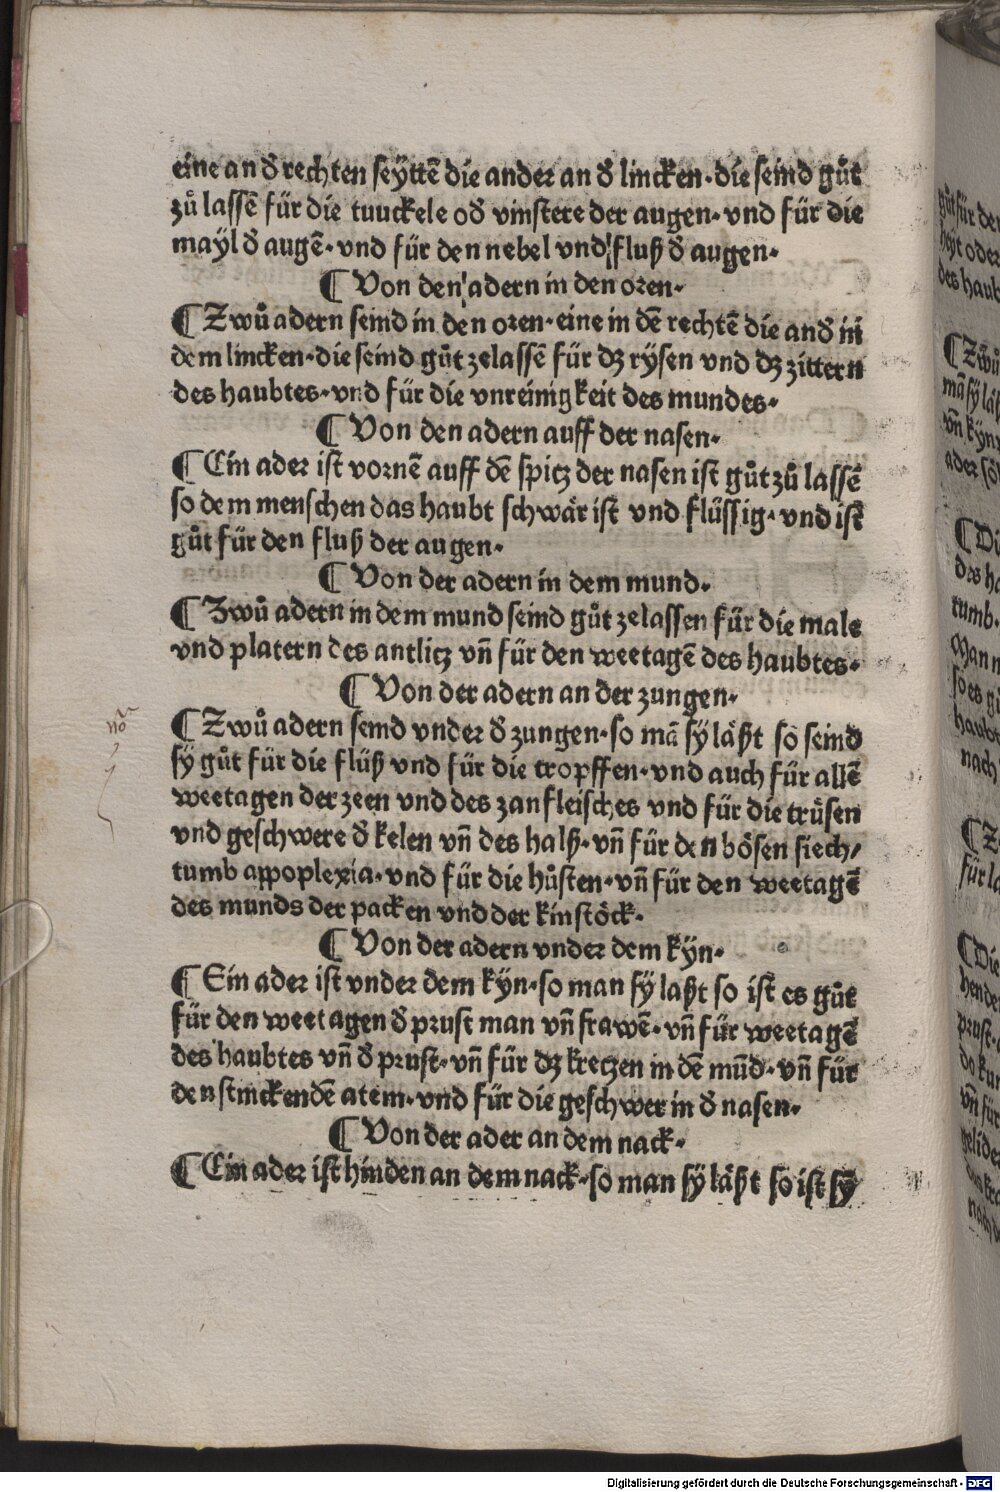 eine an đ rechten seÿttē die ander an đ lincken·die seind gůt
zů lassē für die tuuckele ođ vinstere der augen·vnd für die
mayl đ augē·vnd für den nebel vnd fluß đ augen·
¶ Von den adern in den oren·
¶ Zwů adern seind in den oren·eine in dē rechtē die anđ in
dem lincken·die seind gůt zelassē für dz rÿsen vnd dz zittern
des haubtes·vnd für die vnreinigkeit des mundes·
¶ Von den adern auff der nasen·
¶ Ein ader ist vornē auff dē spitz der nasen ist gůt zů lassē
so dem menschen das haubt schwår ist vnd flüssig·vnd ist
gůt für den fluß der augen·
¶ Von der adern in dem mund·
¶ Zwů adern in dem mund seind gůt zelassen für die male
vnd platern des antlitz vn̄ für den weetagē des haubtes·
¶ Von der adern an der zungen·
¶ Zwů adern seind vnder đ zungen·so mā sÿ låßt so seind
sÿ gůt für die flüß vnd für die tropffen·vnd auch für allē
weetagen der zeen vnd des zanfleisches vnd für die trůsen
vnd geschwere đ kelen vn̄ des halß·vn̄ für den bösen siech/
tumb appoplexia·vnd für die hůsten·vn̄ für den weetagē
des munds der packen vnd der kinstöck·
¶ Von der adern vnder dem kÿn·
¶ Ein ader ist vnder dem kÿn·so man sÿ laßt so ist es gůt
für den weetagen đ prust man vn̄ frawē·vn̄ für weetagē
des haubtes vn̄ đ prust·vn̄ für dz kretzen in dē mūd·vn̄ für
den stinckendē atem·vnd für die geschwer in đ nasen·
¶ Von der ader an dem nack·
¶ Ein ader ist hinden an dem nack·so man sÿ låßt so ist sÿ
Digitalisierung gefördert durch die Deutsche Forschungsgemeinschaft - DFG